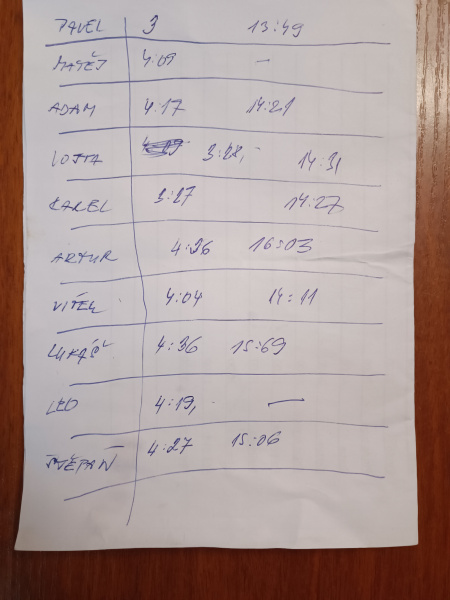 PAVEL 3 13:49
MATĚJ 4:09 —
ADAM 4:17 14:21
LOTTA 3:28,- 14:31
KAREL 3:27 14:27
ARTUR 4:26 16:03
VÍTEK 4:04 14:11
LUKÁŠ 4:36 15:69
LEO 4:19, —
ŠTĚPÁN 4:27 15:06